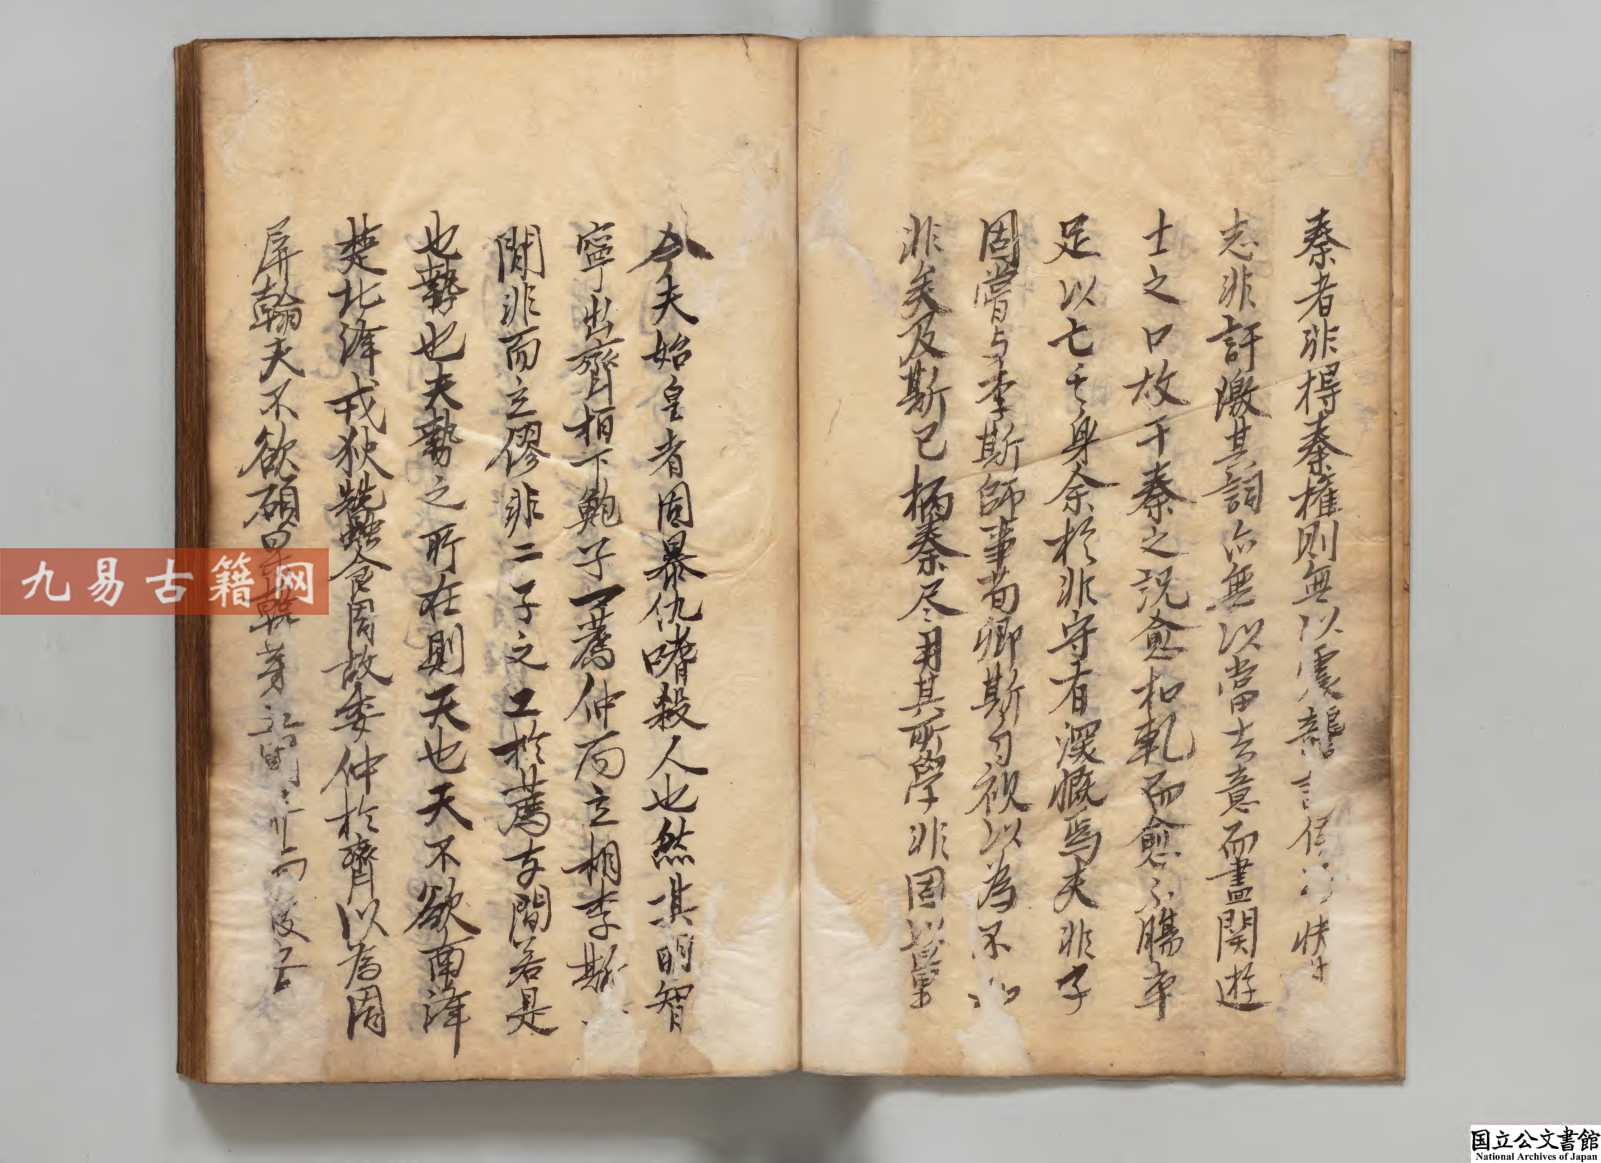 秦者非得秦權則無以震讋
志非訐激其詞亦無以當去意而盡関遊
士之口故干秦之説愈和軋而愈不膓卒
足以亡其身余於非守有深慨焉夫非子
固嘗与李斯師事荀卿斯自視以為不
非矣及斯已柄秦尽用其所學非因以
今夫始皇者固暴仇嗜殺人也然其明智
寧出齊栢下鮑子一薦仲而立相李斯
間非而立僇非二子之工於薦与間若是
也勢也夫勢之所在則天也天不欲南滓
楚北滓戎狄蚕食周故委仲於齊以為周
屏翰夫不欲碩
九易古籍网
国立公文書館
National Archives of Japan